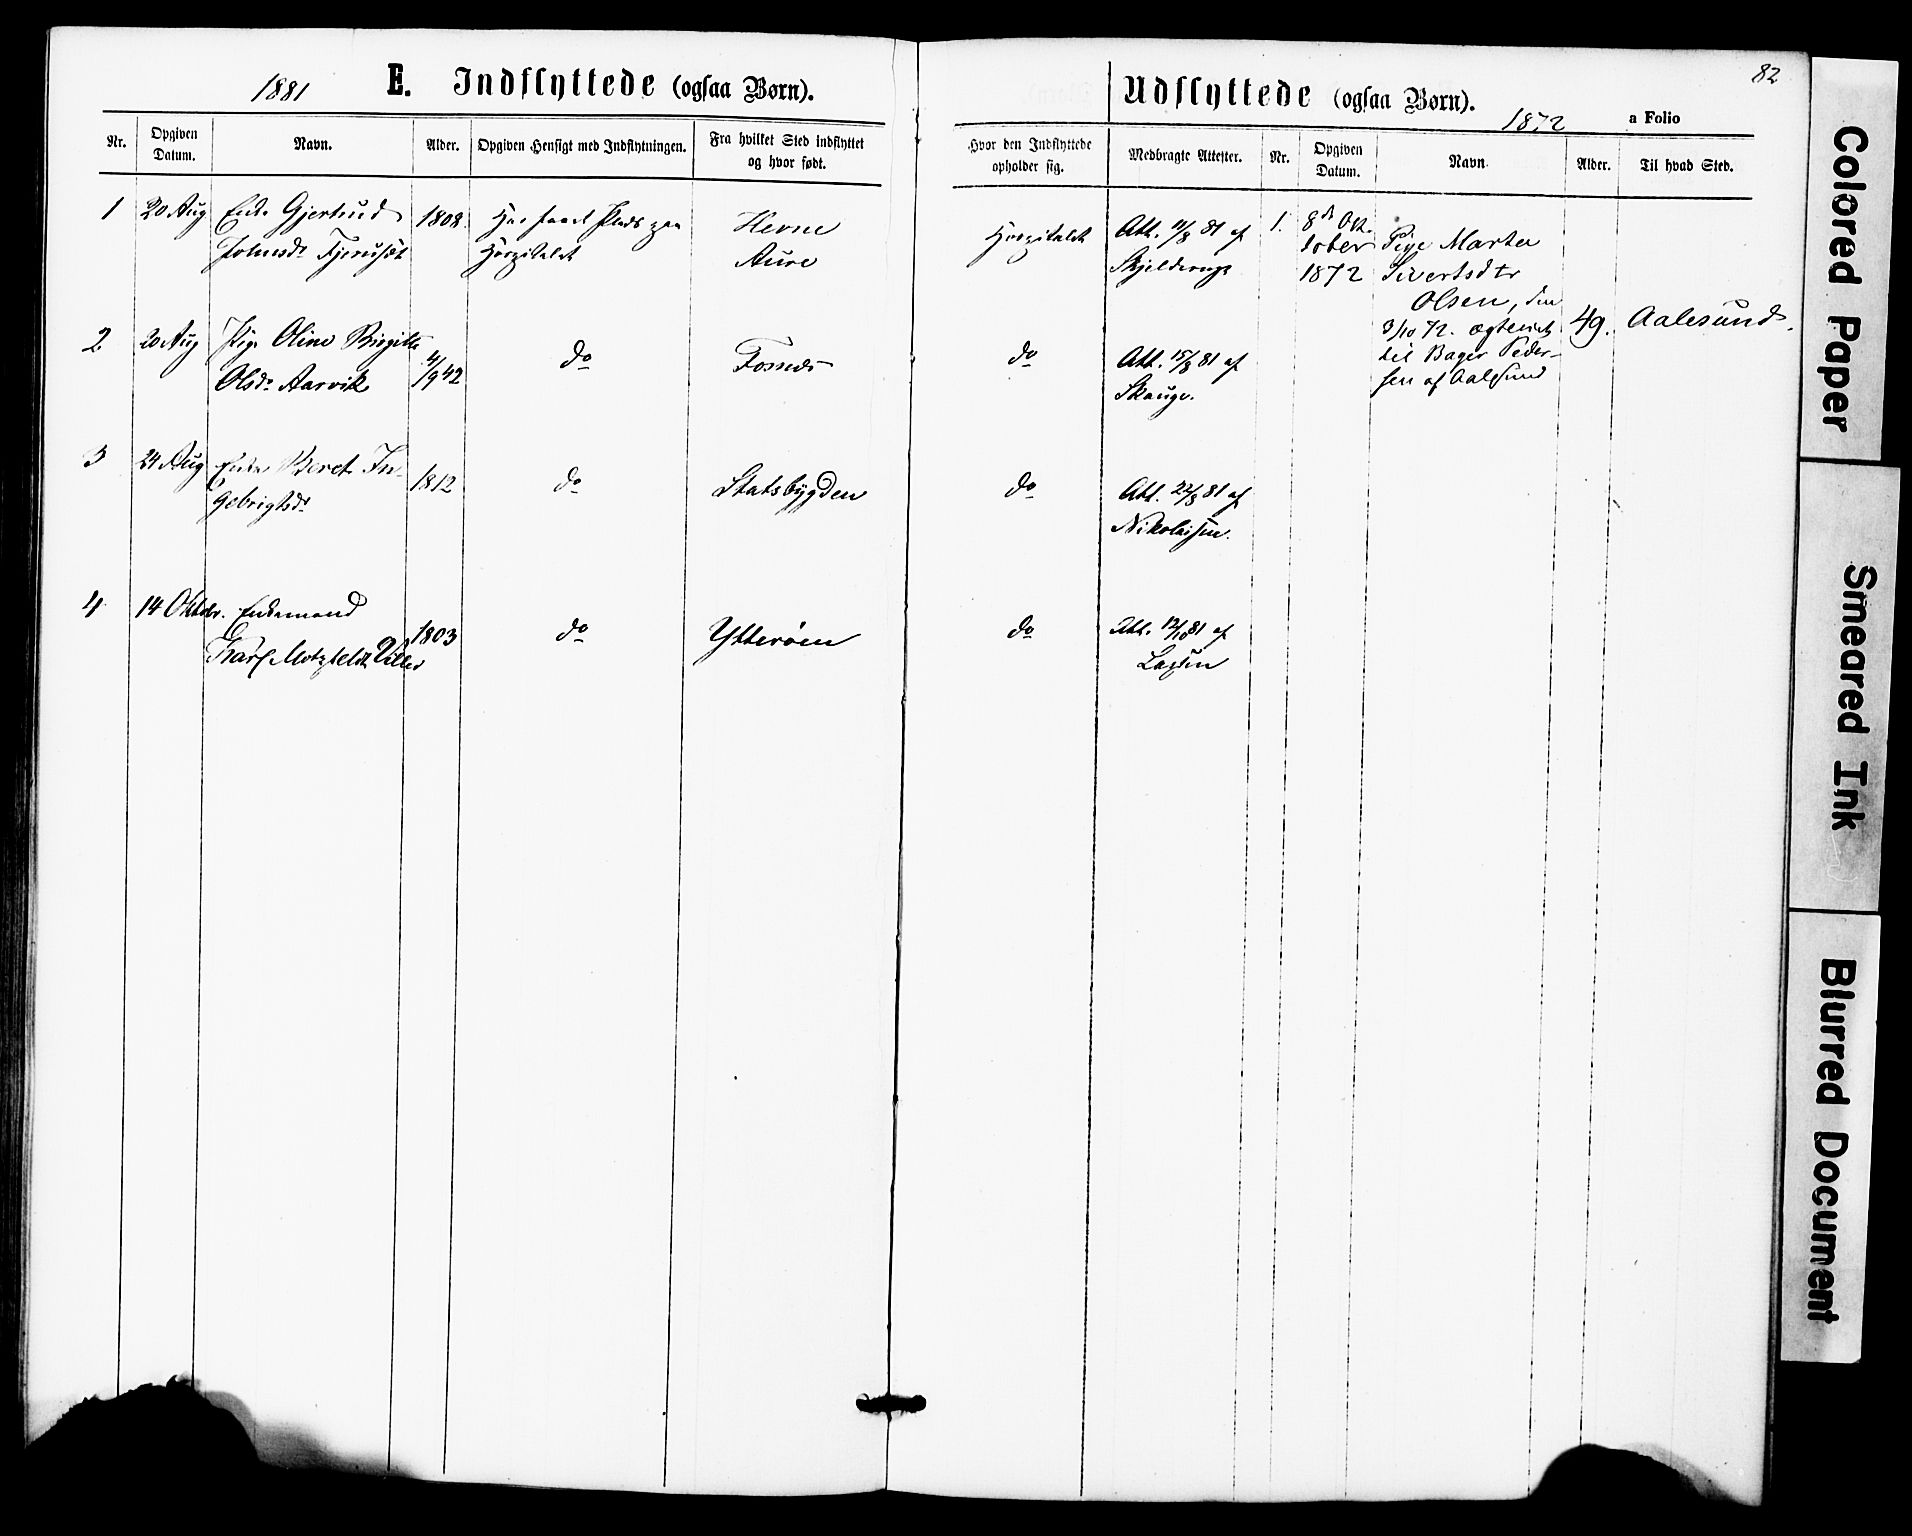 1881 E. Indflyttede (ogsaa Børn).
Nr. Opgiven Datum. Navn. Alder. Opgiven Hensigt med Indflytningen. Fra hvilket Sted indflyttet og hvor født.
1 20 Aug Enke Gjertrud 1802. Har faaet Plads paa Hevne
Johnsdr Hospitalet Aure
2 20 Aug Pige Oline Birgitte 4/9 42 do Fosnes
Olsdr Aarvik
3 24 Aug Enke Beret In- 1812 do Statsbygden
gebrigtsdr
4 14 Oktbr. Enkemand 1803 do Ytterøen
Motzfeldt
82
Udflyttede (ogsaa Børn). 1872 a Folio
Hvor den Indflyttede opholder sig. Medbragte Attester. Nr. Opgiven Datum. Navn. Alder. Til hvad Sted.
Hospitalet Att. 11/8 81 af 1. 8de Ok-
Skjelderup tober Pige Marta
1872 Sivertsdtr
Olsen, den
3/10 72. ægteviet 49. Aalesund.
do Att. 15/8 81 af til Bager Peder-
Skauge. sen af Aalesund
do Att. 22/8 81 af
Nikolaisen.
do Att. 12/10 81 af
Colored Paper
Smeared Ink
Blurred Document